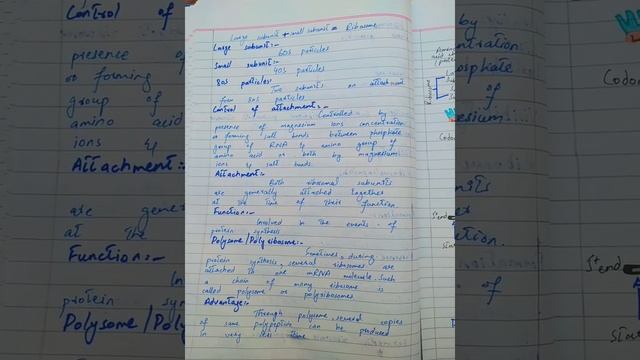 Large subunit + small subunit = Ribosome
Large subunit:-
60S particles
Small subunit:-
40S particles
80S particles:-
Two subunits on attachment
form 80S particles
Control of attachment:-
Controlled by
presence of magnesium ions concentration
or forming salt bonds between phosphate
group of RNA & amino group of
amino acid or both by magnesium
ions & salt bonds.
Attachment:-
Both ribosomal subunits
are generally attached together
at the time of their function.
Function:-
Involved in the events of
protein synthesis
Polysome/Polyribosome:-
Sometimes, during
protein synthesis, several ribosomes are
attached to one mRNA molecule. Such
a chain of many ribosome is
called polysome or polyribosomes
Advantage:-
Through polysome, several copies
of same polypeptide can be produced
in very less time
Control of
presence of
or forming
group of
amino acid
ions &
Attachment:
are gene
at the
Function:-
In
protein syn
Polysome/Pol
by
centration
phosphate
of
magnesium
units
ether
ction.
of
Codo
5' end
Star